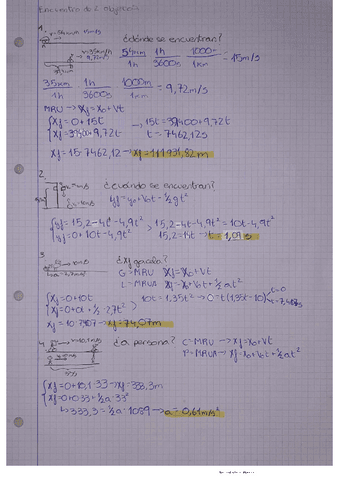 Encuentro de 2 objetos
1.
v=54km/h 15m/s
¿dónde se encuentran?
v=35km/h
9,72m/s
54km/1h · 1h/3600s · 1000m/1km = 15m/s
35km/1h · 1h/3600s · 1000m/1km = 9,72m/s
MRU → xf = x0 + Vt
xf = 0+15t
15t = 39400+9,72t
xf = 39400+9,72t
t = 7462,12s
xf = 15·7462,12 → xf = 111931,82m
2.
¿cuándo se encuentran?
yf = y0+V0t - ½gt²
yf = 15,2-4t-4,9t²
15,2-4t-4,9t² = 10t-4,9t²
yf = 0+10t-4,9t²
15,2=14t → t = 1,09s
3.
¿xf gacela?
G=MRU xf = x0+Vt
L=MRUA xf = x0+V0t+½at²
xf = 0+10t
10t = 1,35t² → 0=t(1,35t-10)
t=0
xf = 0+0t+½·2,7t²
xf = 10·7,407 → xf = 74,07m
4.
v=10,1m/s
¿a persona?
C=MRU → xf = x0+Vt
P=MRUA → xf = x0+V0t+½at²
333
xf = 0+10,1·33 → xf = 333,3m
xf = 0+0·33+½a·33²
333,3 = ½a·1089 → a = 0,61m/s²